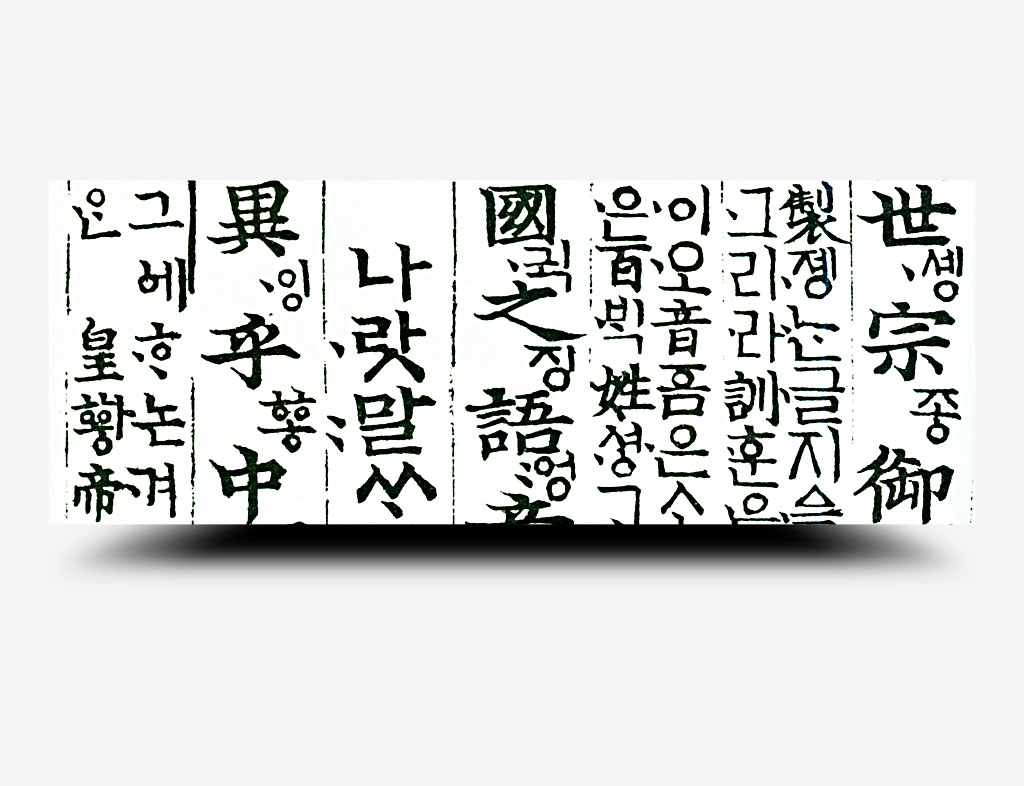 世솅〮宗종御
製졩〮ᄂᆞᆫ글지ᅀᅳᆯ
〮그리라訓훈〮
이〮오〮音음은소
〮은百〮ᄇᆡᆨ姓셩〮
國귁〮之징語ᅌᅥᆼ〯
나랏〮말〯ᄊᆞ
異잉〮乎ᅘᅩᆼ中
그에ᄒᆞ〮논겨〯
〮ᄋᆞᆫ皇ᅘᅪᆼ帝